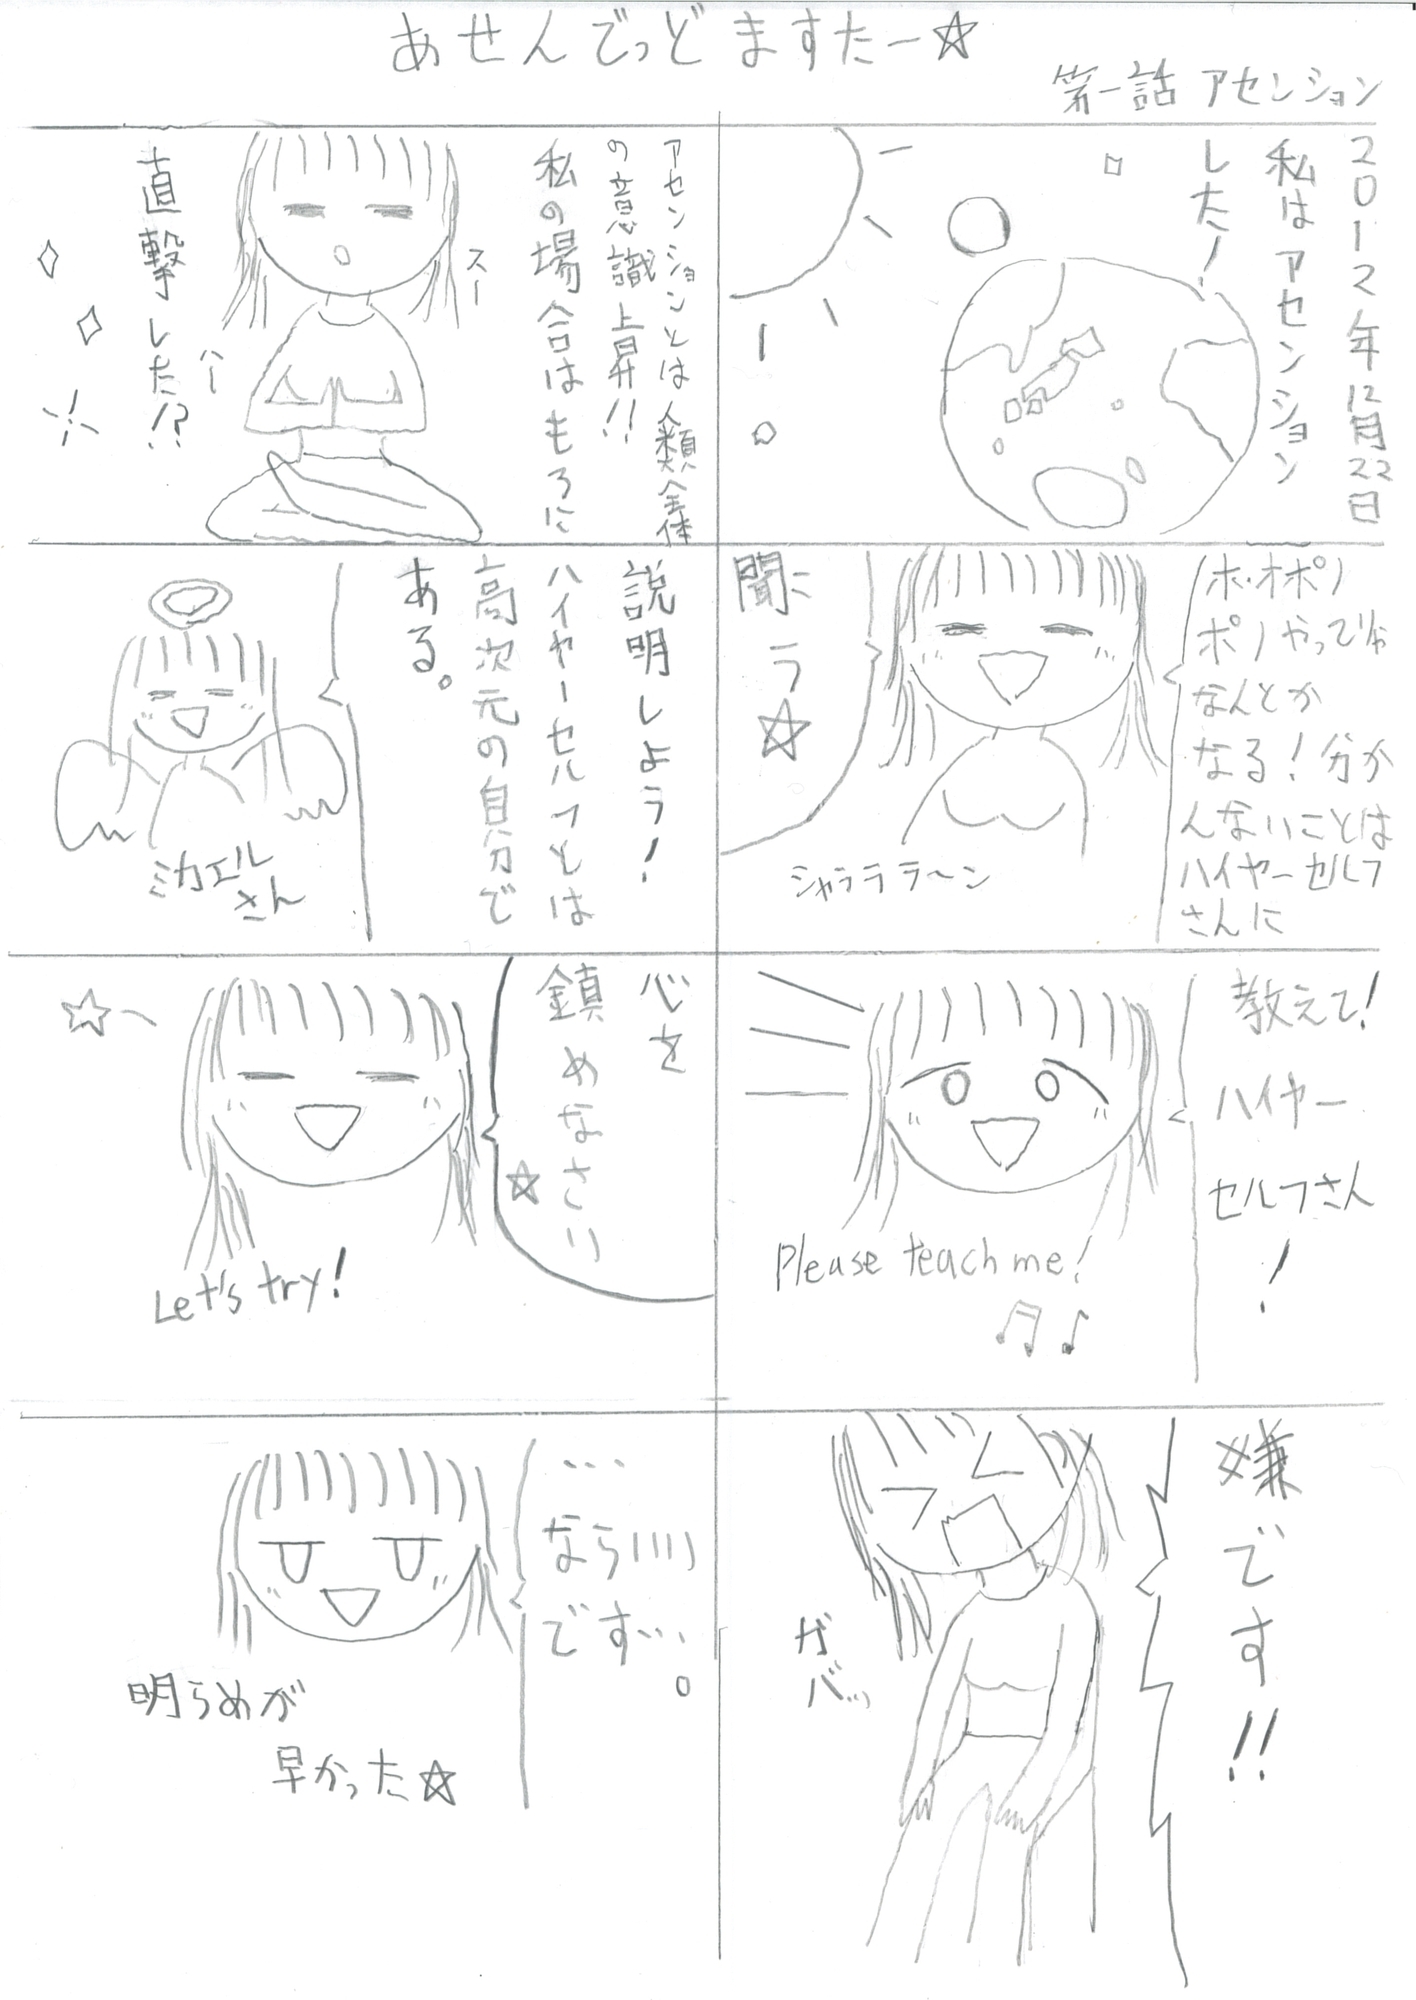 あせんでっどますたー☆
第一話 アセンション
2012年12月22日
私はアセンション
した!
アセンションとは人類全体
の意識上昇!!
私の場合はもろに
直撃した!?
スー
ハー
ホ・オポノ
ポノやってりゃ
なんとか
なる!分か
んないことは
ハイヤーセルフ
さんに
聞こ
う☆
シャラララ～ン
説明しよう!
ハイヤーセルフとは
高次元の自分で
ある。
ミカエル
さん
教えて!
ハイヤー
セルフさん
!
Please teach me!
心を
鎮めなさい
☆
Let's try!
嫌です!!
ガバッ
…
ならいい
です…。
明らめが
早かった☆